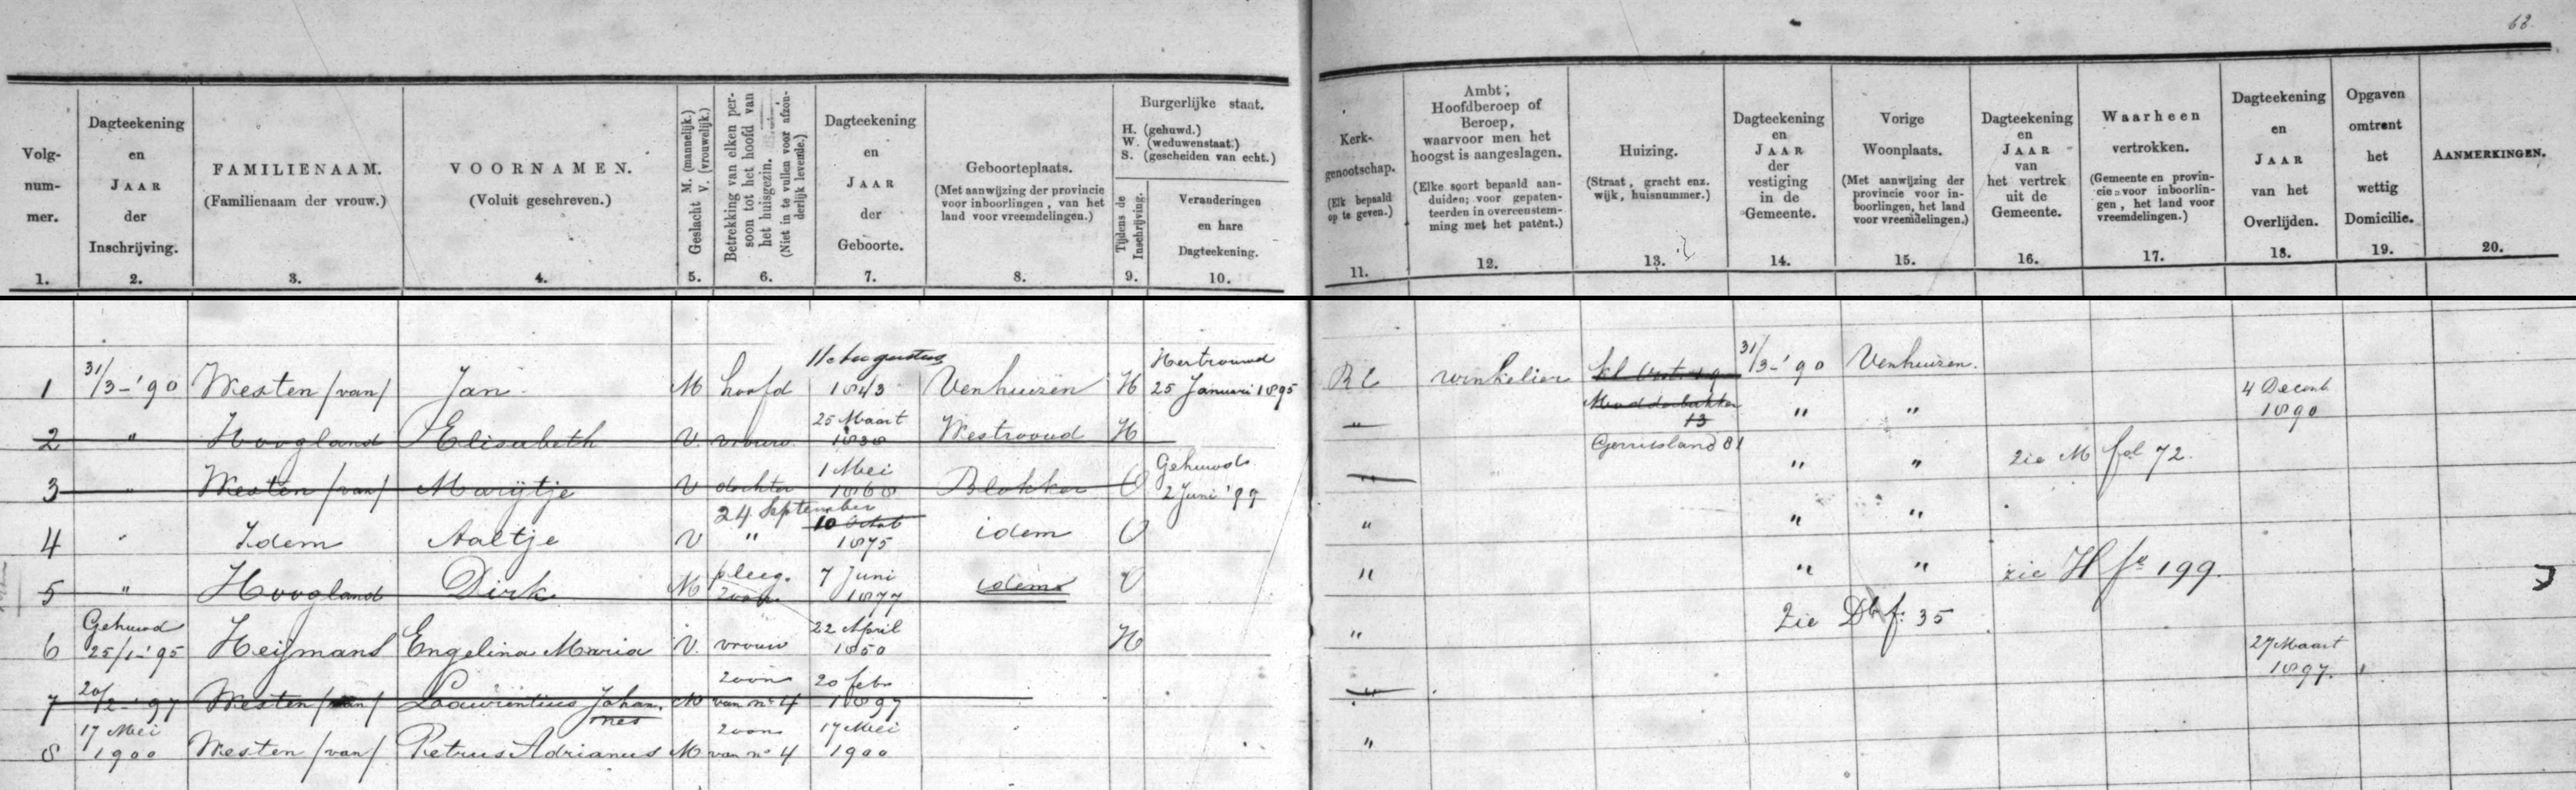 62
Volg-
num-
mer.
1.
Dagteekening
en
JAAR
der
Inschrijving.
2.
FAMILIENAAM.
(Familienaam der vrouw.)
3.
VOORNAMEN.
(Voluit geschreven.)
4.
Geslacht M. (mannelijk.)
V. (vrouwelijk.)
5.
Betrekking van elken per-
soon tot het hoofd van
het huisgezin.
(Niet in te vullen voor afzon-
derlijk levende.)
6.
Dagteekening
en
JAAR
der
Geboorte.
7.
Geboorteplaats.
(Met aanwijzing der provincie
voor inboorlingen, van het
land voor vreemdelingen.)
8.
Burgerlijke staat.
H. (gehuwd.)
W. (weduwenstaat.)
S. (gescheiden van echt.)
Tijdens de
Inschrijving.
9.
Veranderingen
en hare
Dagteekening.
10.
Kerk-
genootschap.
(Elk bepaald
op te geven.)
11.
Ambt,
Hoofdberoep of
Beroep,
waarvoor men het
hoogst is aangeslagen.
(Elke soort bepaald aan-
duiden; voor gepaten-
teerden in overeenstem-
ming met het patent.)
12.
Huizing.
(Straat, gracht enz.
wijk, huisnummer.)
13.
Dagteekening
en
JAAR
der
vestiging
in de
Gemeente.
14.
Vorige
Woonplaats.
(Met aanwijzing der
provincie voor in-
boorlingen, het land
voor vreemdelingen.)
15.
Dagteekening
en
JAAR
van
het vertrek
uit de
Gemeente.
16.
Waarheen
vertrokken.
(Gemeente en provin-
cie voor inboorlin-
gen, het land voor
vreemdelingen.)
17.
Dagteekening
en
JAAR
van het
Overlijden.
18.
Opgaven
omtrent
het
wettig
Domicilie.
19.
AANMERKINGEN.
20.
1 31/3-'90 Westen /van/ Jan M hoofd 11 Augustus 1843 Venhuizen H Hertrouwd 25 Januari 1895 RC winkelier 31/3-'90 Venhuizen.
2 " Hoogland Elisabeth V. vrouw. 25 Maart 1838 Westwoud H " 13 " " 4 Decemb 1890
Gerrisland 81
3 " Westen /van/ Marijtje V dochter 1 Mei 1868 Blokker O Gehuwd 2 Juni '99 " " " zie M fol 72.
4 " Idem Aaltje V " 24 September 10 Octob 1875 idem O " " "
5 " Hoogland Dirk M pleeg. zoon 7 Juni 1877 idem O " " " zie H fo 199.
6 Gehuwd 25/1-'95 Heijmans Engelina Maria V. vrouw 22 April 1850 H " Zie Db f. 35
7 20/2-'97 Westen /van/ Lauwrentius Johannes M zoon van no 4 20 febr 1897 " 27 Maart 1897.
8 17 Mei 1900 Westen /van/ Petrus Adrianus M zoon van no 4 17 Mei 1900 "